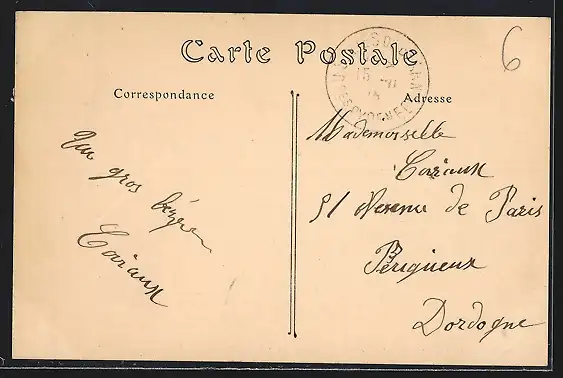 Carte Postale
6
Correspondance
Adresse
gros
Cariaux
Mademoiselle
Cariaux
51 Avenue de Paris
Périgueux
Dordogne